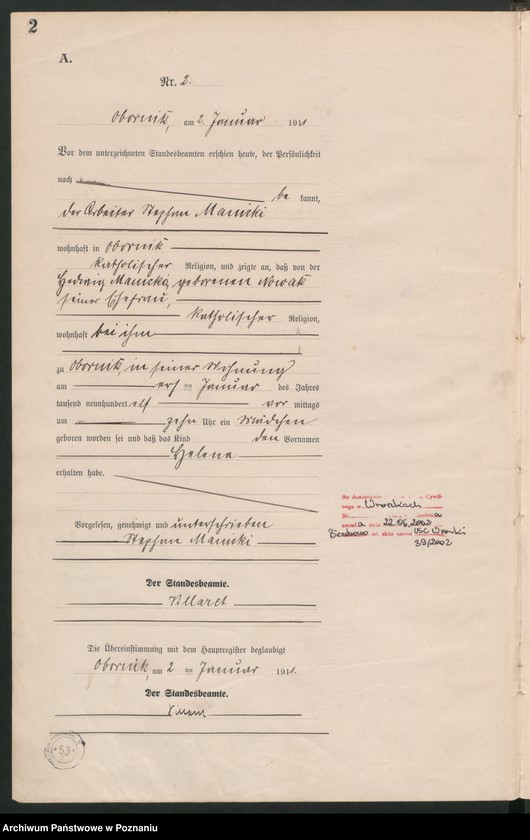 2
A.
Nr. 2.
Obornik, am 2. Januar 1911
Vor dem unterzeichneten Standesbeamten erschien heute, der Persönlichkeit
nach
be kannt,
der Arbeiter Stephan Manicki
wohnhaft in Obornik
katholischer Religion, und zeigte an, daß von der
Hedwig Manicka, geborenen Nowak
seiner Ehefrau,
katholischer Religion,
wohnhaft bei ihm
zu Obornik, in seiner Wohnung
am ersten Januar des Jahres
tausend neunhundert elf vor mittags
um zehn Uhr ein Mädchen
geboren worden sei und daß das Kind den Vornamen
Helena
erhalten habe.
Vorgelesen, genehmigt und unterschrieben
Stephan Manicki
Der Standesbeamte.
Die Übereinstimmung mit dem Hauptregister beglaubigt
Obornik, am 2 ten Januar 1911.
Der Standesbeamte.
Na
Cywil-
nego w Wronkach
Nr.
zmarła dnia 22.06.2002
nr. aktu zgonu USC Wronki
39/2002
53
Archiwum Państwowe w Poznaniu